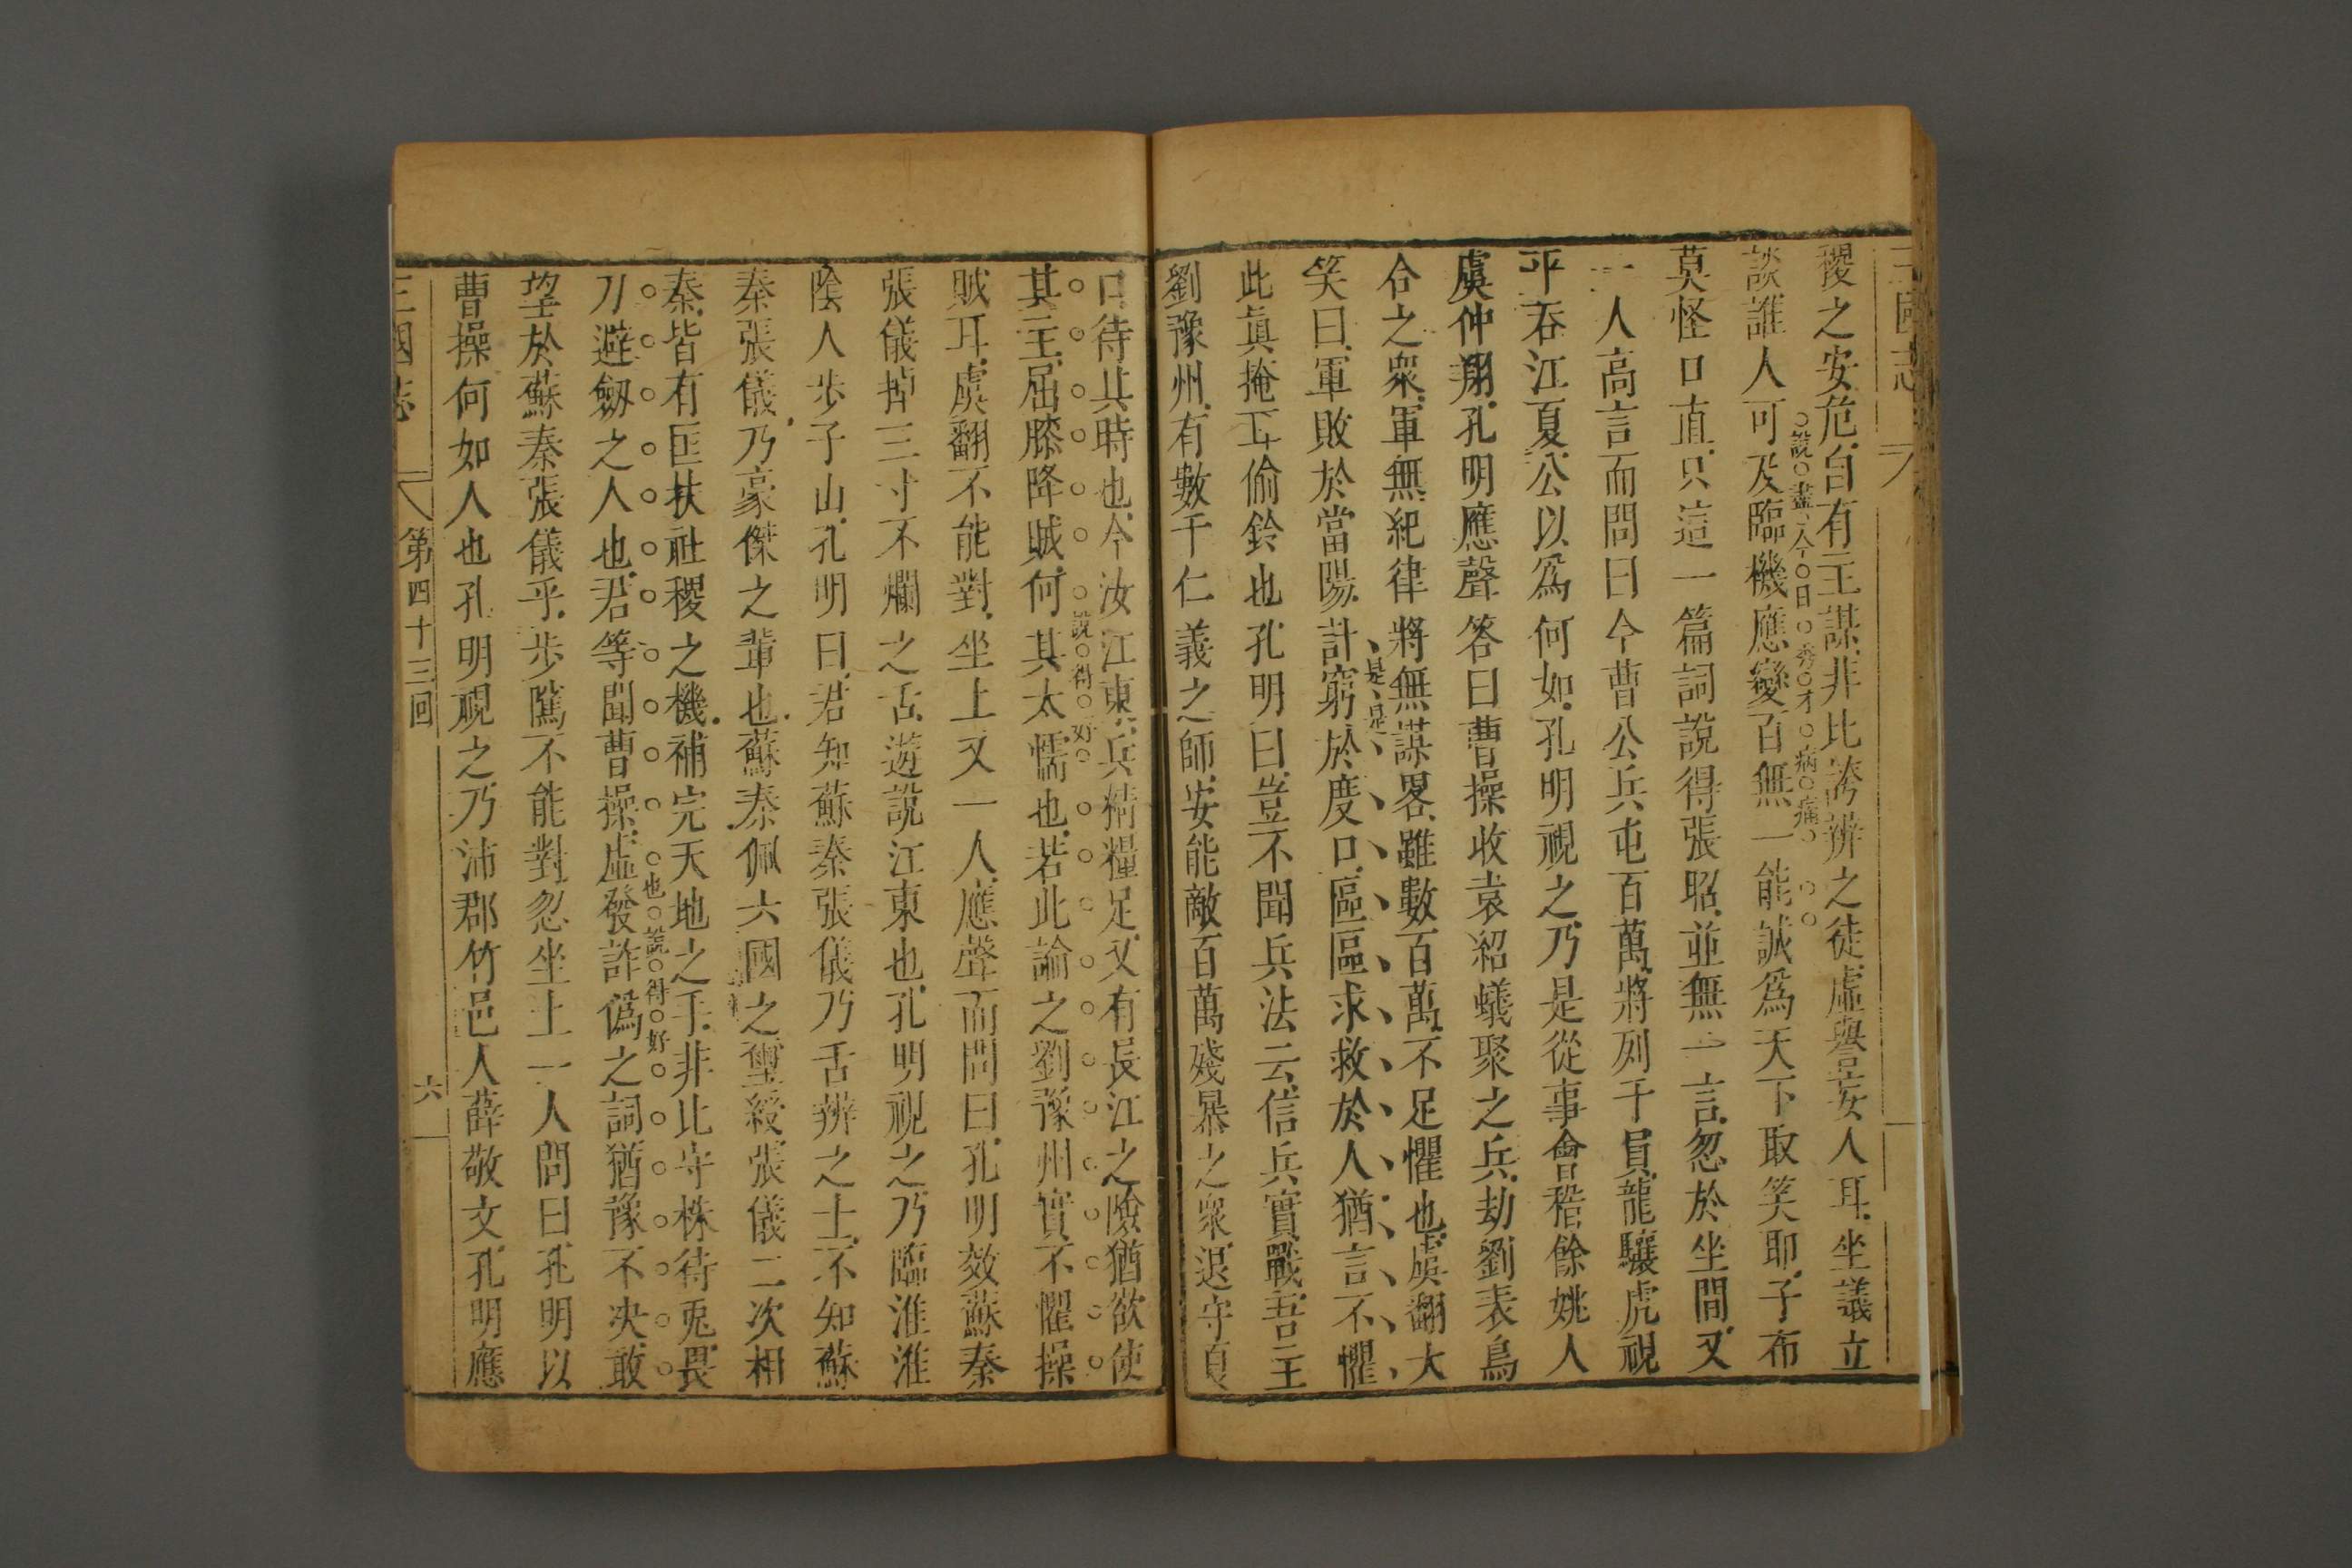 三國志
稷之安危自有主謀非比誇辨之徒虛譽妄人耳坐議立
說盡今日秀才病痛
談誰人可及臨機應變百無一能誠爲天下取笑耶子布
莫怪口直只這一篇詞說得張昭並無一言忽於坐間又
一人高言而問曰今曹公兵屯百萬將列千員龍驤虎視
平吞江夏公以爲何如孔明視之乃是從事會稽餘姚人
虞仲翔孔明應聲答曰曹操收袁紹蟻聚之兵劫劉表烏
合之衆軍無紀律將無謀畧雖數百萬不足懼也虞翻大
是是
笑曰軍敗於當陽計窮於度口區區求救於人猶言不懼
此眞掩耳偷鈴也孔明曰豈不聞兵法云信兵實戰吾主
劉豫州有數千仁義之師安能敵百萬殘暴之衆退守夏
口待其時也今汝江東兵精糧足又有長江之險猶欲使
說得好
其主屈膝降賊何其太懦也若此論之劉豫州實不懼操
賊耳虞翻不能對坐上又一人應聲而問曰孔明效蘇秦
張儀掉三寸不爛之舌遊說江東也孔明視之乃臨淮淮
陰人步子山孔明曰君知蘇秦張儀乃舌辨之士不知蘇
秦張儀乃豪傑之輩也蘇秦佩六國之璽綬張儀二次相
秦皆有匡扶社稷之機補完天地之手非比守株待兎畏
也說得好
刀避劔之人也君等聞曹操虛發詐僞之詞猶豫不决敢
望於蘇秦張儀乎步隲不能對忽坐上一人問曰孔明以
曹操何如人也孔明視之乃沛郡竹邑人薛敬文孔明應
三國志
第四十三回
六